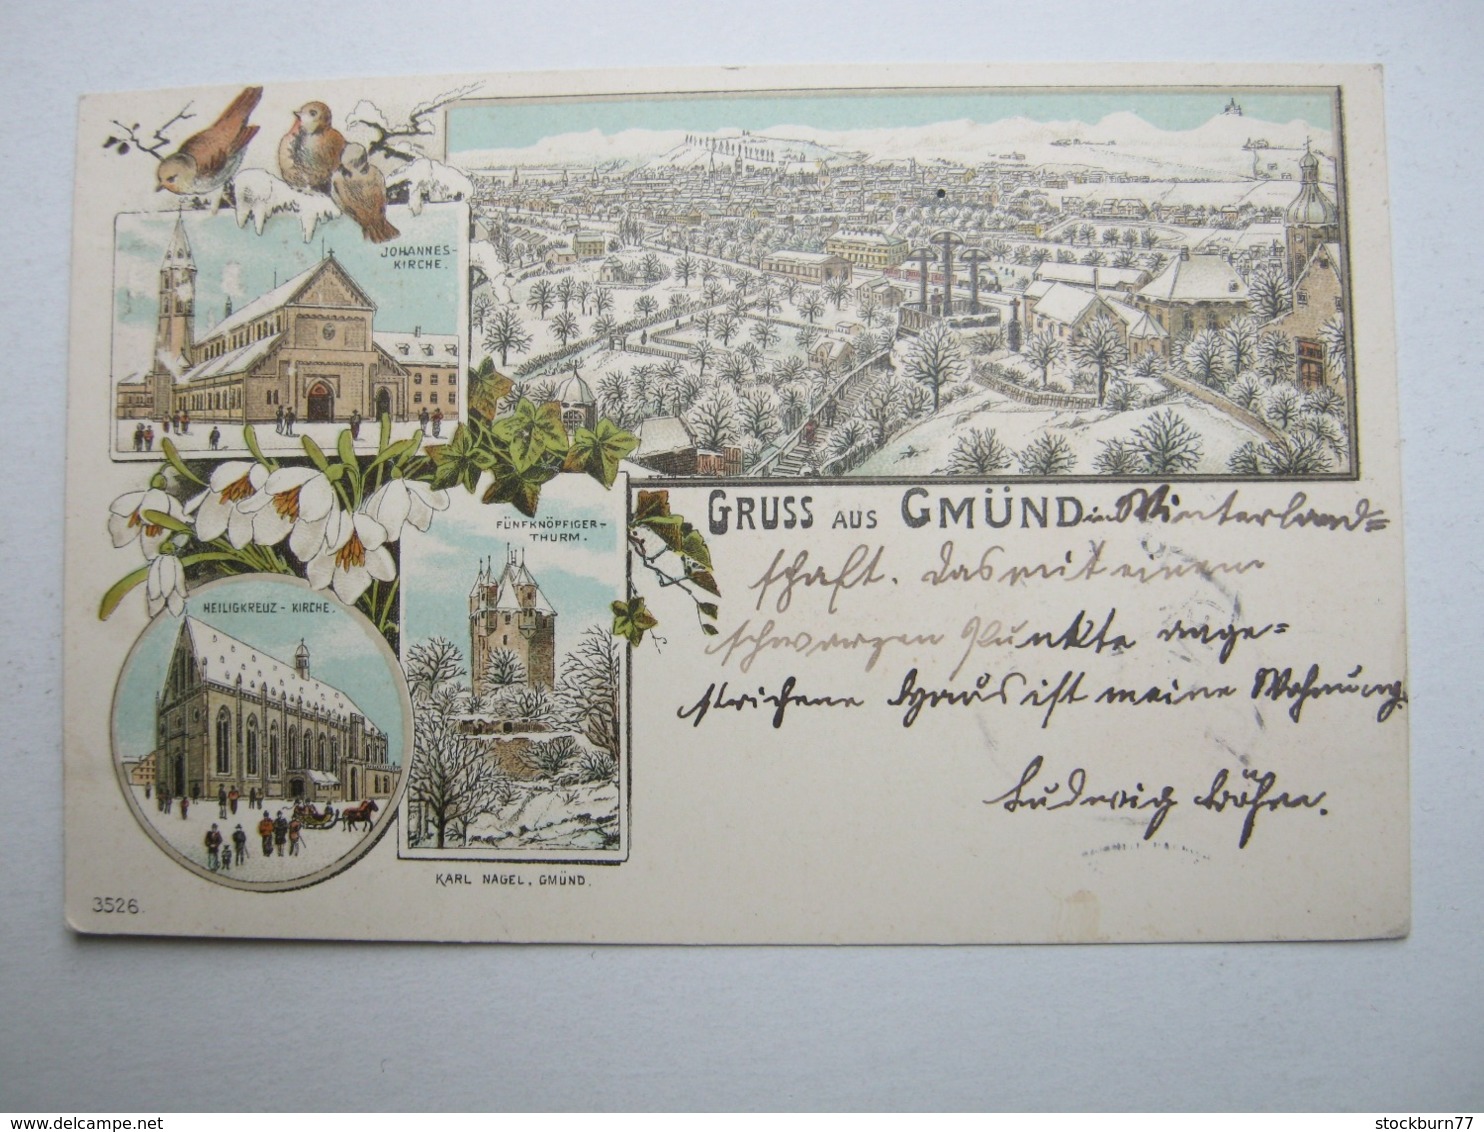 JOHANNES-
KIRCHE.
FÜNFKNÖPFIGER-
THURM.
HEILIGKREUZ - KIRCHE.
GRUSS AUS GMÜND in Winterland=
schaft. Das mit einem
schwarzen Punkte ange=
strichene Haus ist meine Wohnung.
Ludwig
KARL NAGEL, GMÜND.
3526.
stockburn77